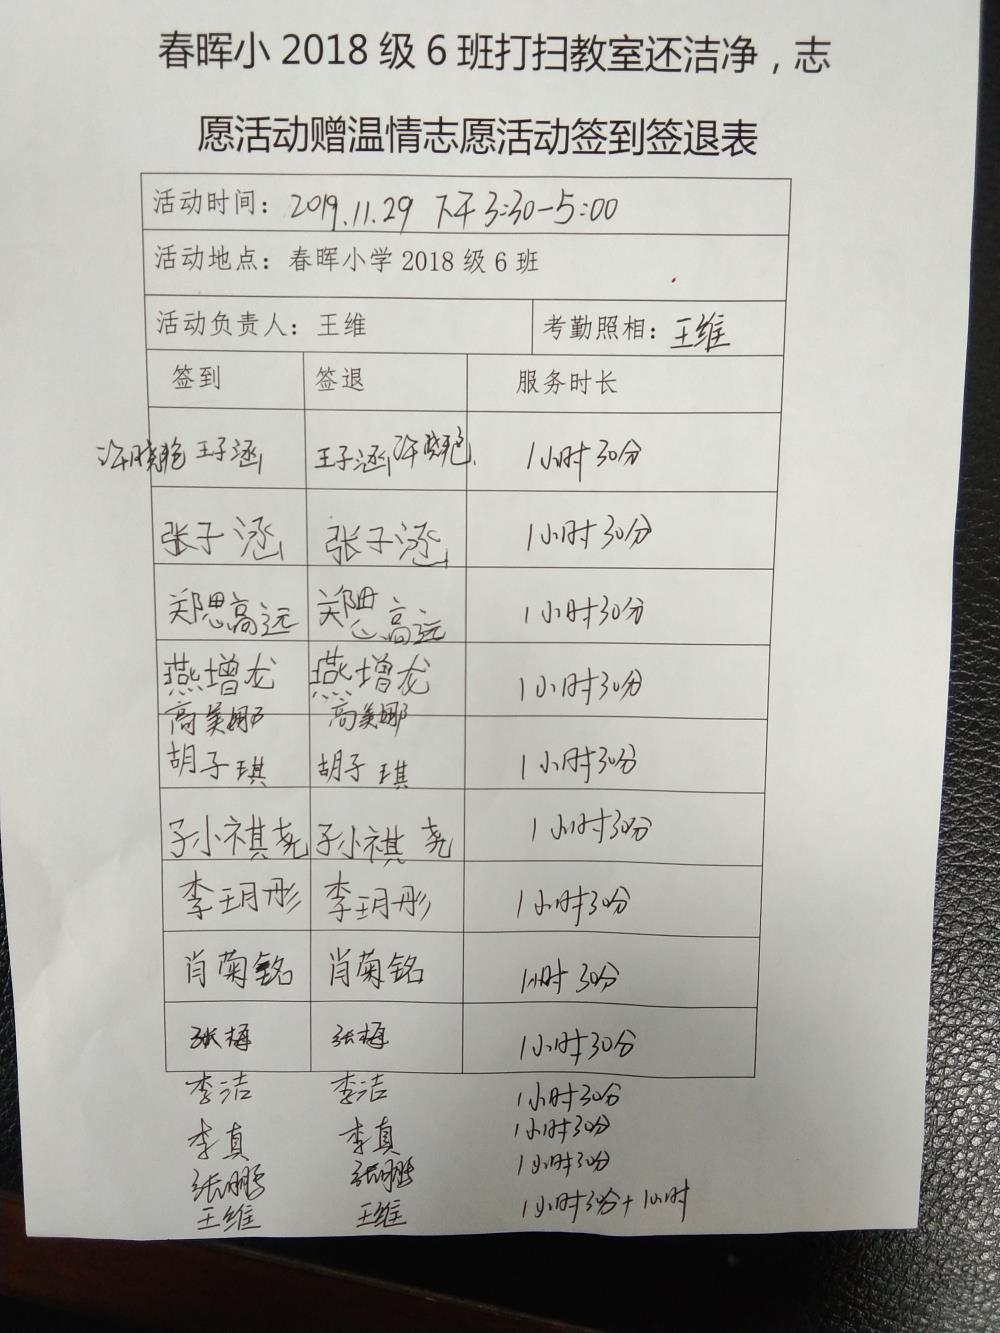 春晖小 2018 级 6 班打扫教室还洁净，志
愿活动赠温情志愿活动签到签退表
活动时间：2019.11.29 下午3:30-5:00
活动地点：春晖小学 2018 级 6 班
活动负责人：王维 考勤照相：王维
签到 签退 服务时长
许晓艳 王子涵 王子涵 许晓艳 1小时30分
张子涵 张子涵 1小时30分
郑思高远 郑思高远 1小时30分
燕增龙 燕增龙 1小时30分
高美娜 高美娜
胡子琪 胡子琪 1小时30分
子小祺尧 子小祺尧 1小时30分
李玥彤 李玥彤 1小时30分
肖菊铭 肖菊铭 1小时30分
张梅 张梅 1小时30分
李洁 李洁 1小时30分
李真 李真 1小时30分
张鹏 张鹏 1小时30分
王维 王维 1小时30分+1小时